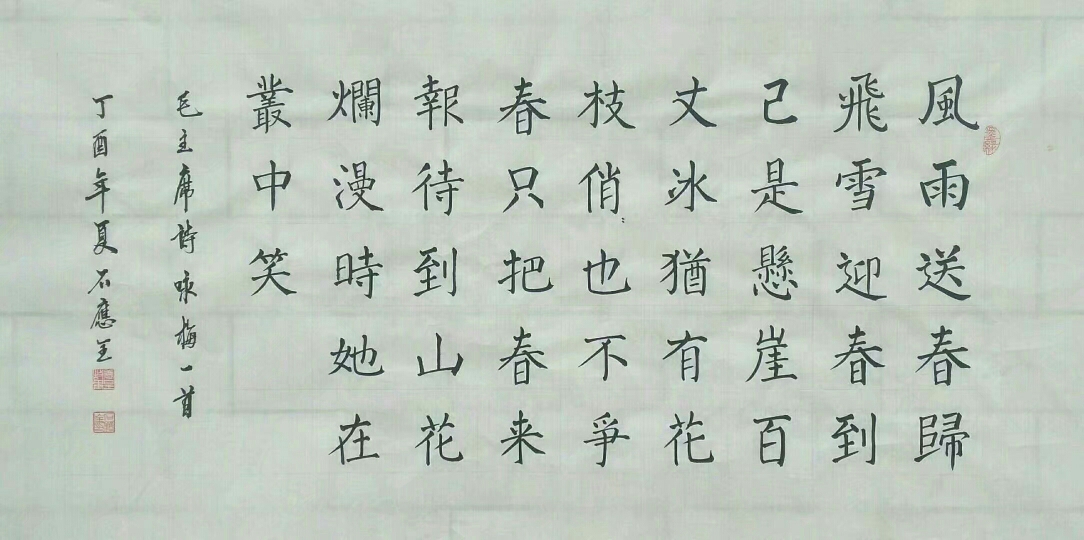 風雨送春歸
飛雪迎春到
己是懸崖百
丈冰猶有花
枝俏也不爭
春只把春来
報待到山花
爛漫時她在
叢中笑
毛主席詩咏梅一首
丁酉年夏石應